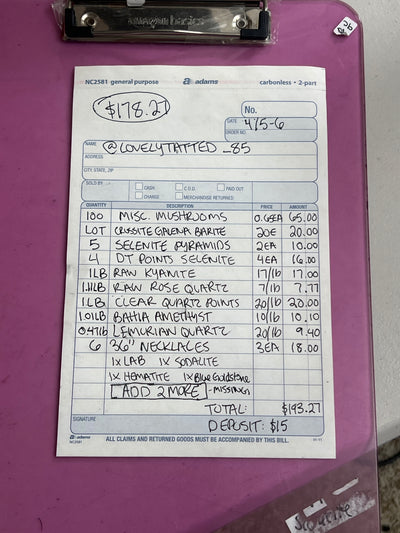 NC2581 general purpose adams carbonless • 2-part
$178.27
No.
DATE 4/5-6
ORDER NO.
NAME @LOVELYTATTED_85
ADDRESS
CITY, STATE, ZIP
SOLD BY CASH C.O.D. PAID OUT
CHARGE MERCHANDISE RETURNED
QUANTITY DESCRIPTION PRICE AMOUNT
100 MISC. MUSHROOMS 0.65EA 65.00
LOT GALENA BARITE 20.00
5 SELENITE PYRAMIDS 2EA 10.00
4 DT POINTS SELENITE 4EA 16.00
1LB RAW KYANITE 17/lb 17.00
1.11LB RAW ROSE QUARTZ 7/lb 7.77
1LB CLEAR QUARTZ POINTS 20/lb 20.00
1.01LB BAHIA AMETHYST 10/lb 10.10
0.47LB LEMURIAN QUARTZ 20/lb 9.40
6 36" NECKLACES 3EA 18.00
1x LAB 1x SODALITE
1x HEMATITE 1x Blue Goldstone
[ADD 2 MORE] - MISSING
TOTAL: $193.27
SIGNATURE DEPOSIT: $15
adams
NC2581 ALL CLAIMS AND RETURNED GOODS MUST BE ACCOMPANIED BY THIS BILL.